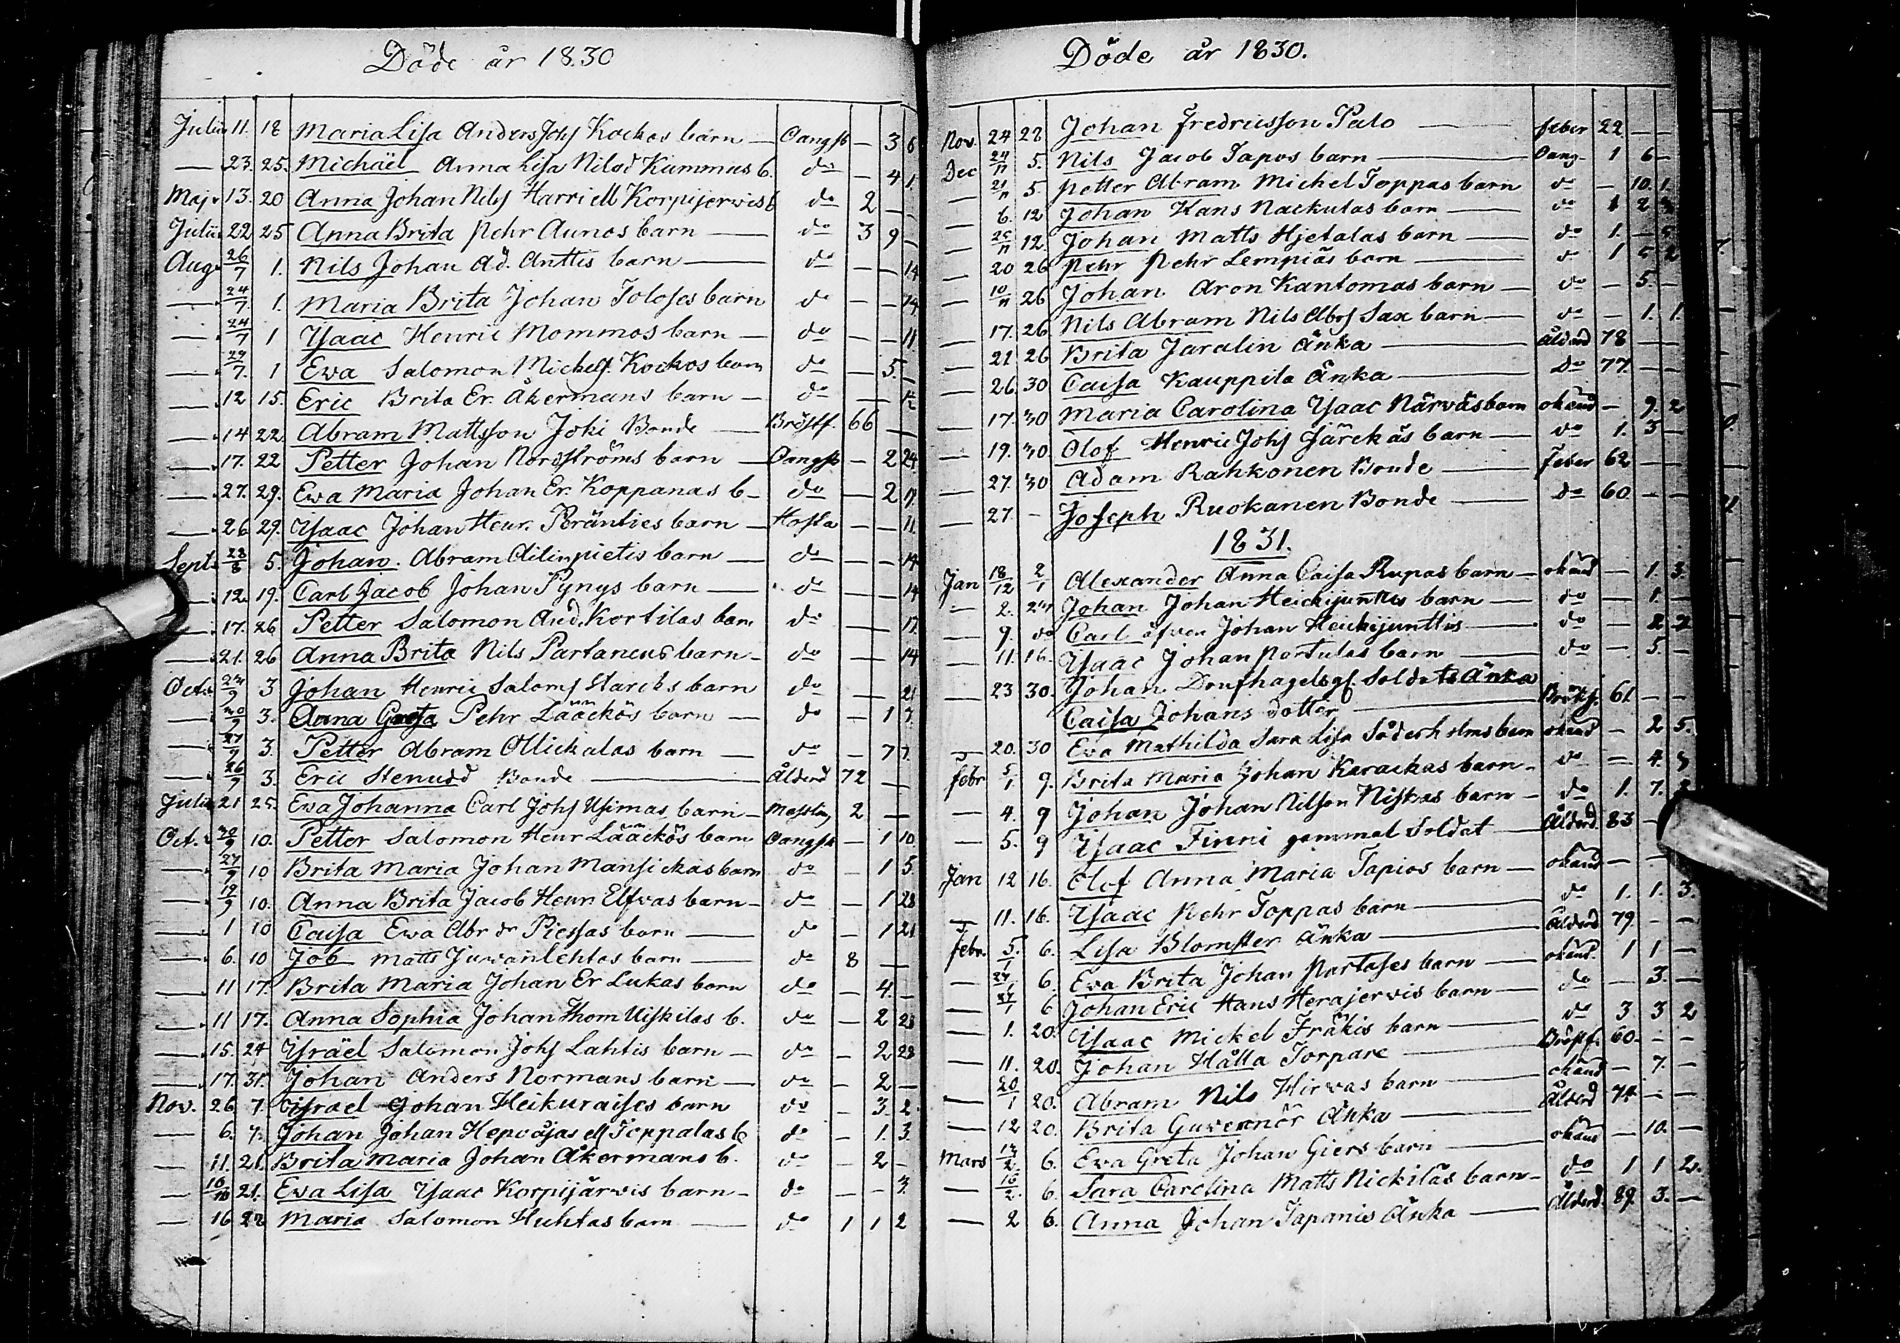 Döde år 1830
Julii 11. 18 Maria Lisa Anders Johs Kockos barn — Oangst — 3 8
— 23. 25. Michaël Anna Lisa Nilsd Kummus b. do — 4 1.
Maj 13. 20 Anna Johan Nils Harri ell Korpijerwis b do 2 —
Julii 22 25 Anna Brita Pehr Aunos barn — do 3 9 —
Aug. 26/7 1. Nils Johan Ad. Anttis barn — do — — 14
— 24/7 1. Maria Brita Johan Tolosos barn do — — 14
— 24/7 1 Isaac Henric Mommos barn — do — — 11
— 27/7. 1 Ewa Salomon Michels Kockos barn do — 5. —
— 12 15. Eric Brita Er. Åkermans barn — do — —
— 14 22 Abram Mattsson Joki Bonde Bröstf. 66 —
— 17. 22 Petter Johan Nordströms barn — Oangst — 2 24
— 27. 29. Ewa Maria Johan Er. Koppanas b — do — 2 17.
— 26 29. Isaac Johan Henr. Peränties barn — Hosta — — 11.
Sept. 28/8 5. Johan. Abram Ailinpietis barn — do — — 14
— 12. 19. Carl Jacob Johan Pynys barn — do — — 14
— 17. 26 Petter Salomon And. Kortilas barn do — — 17.
— 21. 26 Anna Brita Nils Partanens barn — do — — 14
Oct. 24/9 3 Johan Henric Saloms Harcks barn do — — 21
— 20/9 3. Anna Greta Pehr Lääckös barn — do — 1 7.
— 27/9 3. Petter Abram Ollickalas barn — do — 7 7.
— 26/9 3. Eric Stenudd Bonde — Ålderd 72 — —
Julii 21 25. Ewa Johanna Carl Johs Usimas barn — Messling 2 —
Oct. 20/9 10. Petter Salomon Henr Lääckös barn Oangst — 1 10
— 27/9 10 Brita Maria Johan Mansickas barn do — 1 5
— 12/9 10. Anna Brita Jacob Henr. Elfvas barn — do — 1 28
— 1 10 Caisa Ewa Abr dr Piessas barn — do — 1 21
— 6. 10 Job Matts Juwanlehtas barn — do 8 —
— 11 17. Brita Maria Johan Er Lukas barn do — 4. —
— 11 17. Anna Sophia Johan Thom Uiskilas b. do — 2 23
— 15. 24 Israël Salomon Johs Lahtis barn — do — 2 23
— 17. 31. Johan Anders Normans barn — do — 2 —
Nov. 26. 7. Israel Johan Heikuraises barn do — 3 2.
— 6. 7. Johan Johan Hepväjas ell Toppalas b do — 1. 3.
— 11. 21. Brita Maria Johan Åkermans b. do — 2 —
— 16/10 21. Ewa Lisa Isaac Korpijärwis barn — do — — 3.
— 16 22 Maria Salomon Huhtas barn — do 1 1 2
Döde år 1830.
Nov. 24 22 Johan Fredricsson Palo — feber 22 — —
Dec 24/11 5. Nils Jacob Tapos barn — Oang. 1 6 —
— 21/11 5. Petter Abram Michel Toppas barn do — 10. 1.
— 6. 12 Johan Hans Naikulas barn — do 1 2
— 25/11 12. Johan Matts Hjetalas barn — do 1. — 5.
— 20 26 Pehr Pehr Lempiäs barn — do 1 5 2
— 10/11 26 Johan Aron Kantomas barn — do — 5. —
— 17. 26 Nils Abram Nils Abrs Sax barn — do — 1. 1.
— 21 26 Brita Jaralin Änka — Ålderd 78 —
— 26. 30 Caisa Kauppila Änka — do 77. —
— 17. 30 Maria Carolina Isaac Närväs barn okänd — 9. 2
— 19. 30 Olof Henric Johs Särckäs barn — do 1. 3 —
— 27. 30 Adam Rahkonen Bonde — feber 62 — —
— 27. — Joseph Ruokanen Bonde — do 60 — —
1831.
Jan 18/12 2/1 Alexander Anna Caisa Rupas barn — okänd — 1. 3.
— 2. Johan Johan Heickijunttis barn — do — 1. —
— 9. do Carl äfven Johan Heickijunttis — do — 2 2
— 11. 16. Isaac Johan Portulas barn — do — 5 —
— 23 30. Johan Soldats Änka
Caisa Johans dotter — Bröstf. 61 — —
— 20. 30 Eva Mathilda Sara Lisa Söderholms barn okänd — 2 5.
febr 5/1. 9. Brita Maria Johan Karackas barn — do — 4. 3
— 4. 9 Johan Johan Nilsson Niskas barn — do 1. 7.
— 5. 9 Isaac Finni gammal Soldat — Ålderd. 83 —
Jan 12 16. Olof Anna Maria Tapios barn — okänd —
— 11. 16. Isaac Pehr Toppas barn — do 1. 1. 3.
febr. 5. 6. Lisa Blomster Änka — Ålderd 79. — —
— 27/1 6. Eva Brita Johan Partases barn — okänd. 1 1 —
— 27/1 6 Johan Eric Hans Herajerwis barn — do — 3. —
— 1. 20. Isaac Mickel Fräkis barn — do 3 3 2
— 11. 20. Johan Hålla Torpare — Bröstf. 60. — —
— 20/1 20. Abram Nils Hirvas barn — okänd — 7. —
— 12 20. Brita Guvernör Änka — Ålderd 74 — —
Mars 14/2. 6. Ewa Greta Johan Giers barn — okänd — 10. —
— 16/2. 6. Sara Carolina Matts Nickilas barn — do 1 1 2.
— 2 6. Anna Johan Tapanis Änka — Ålderd. 89. 3. —